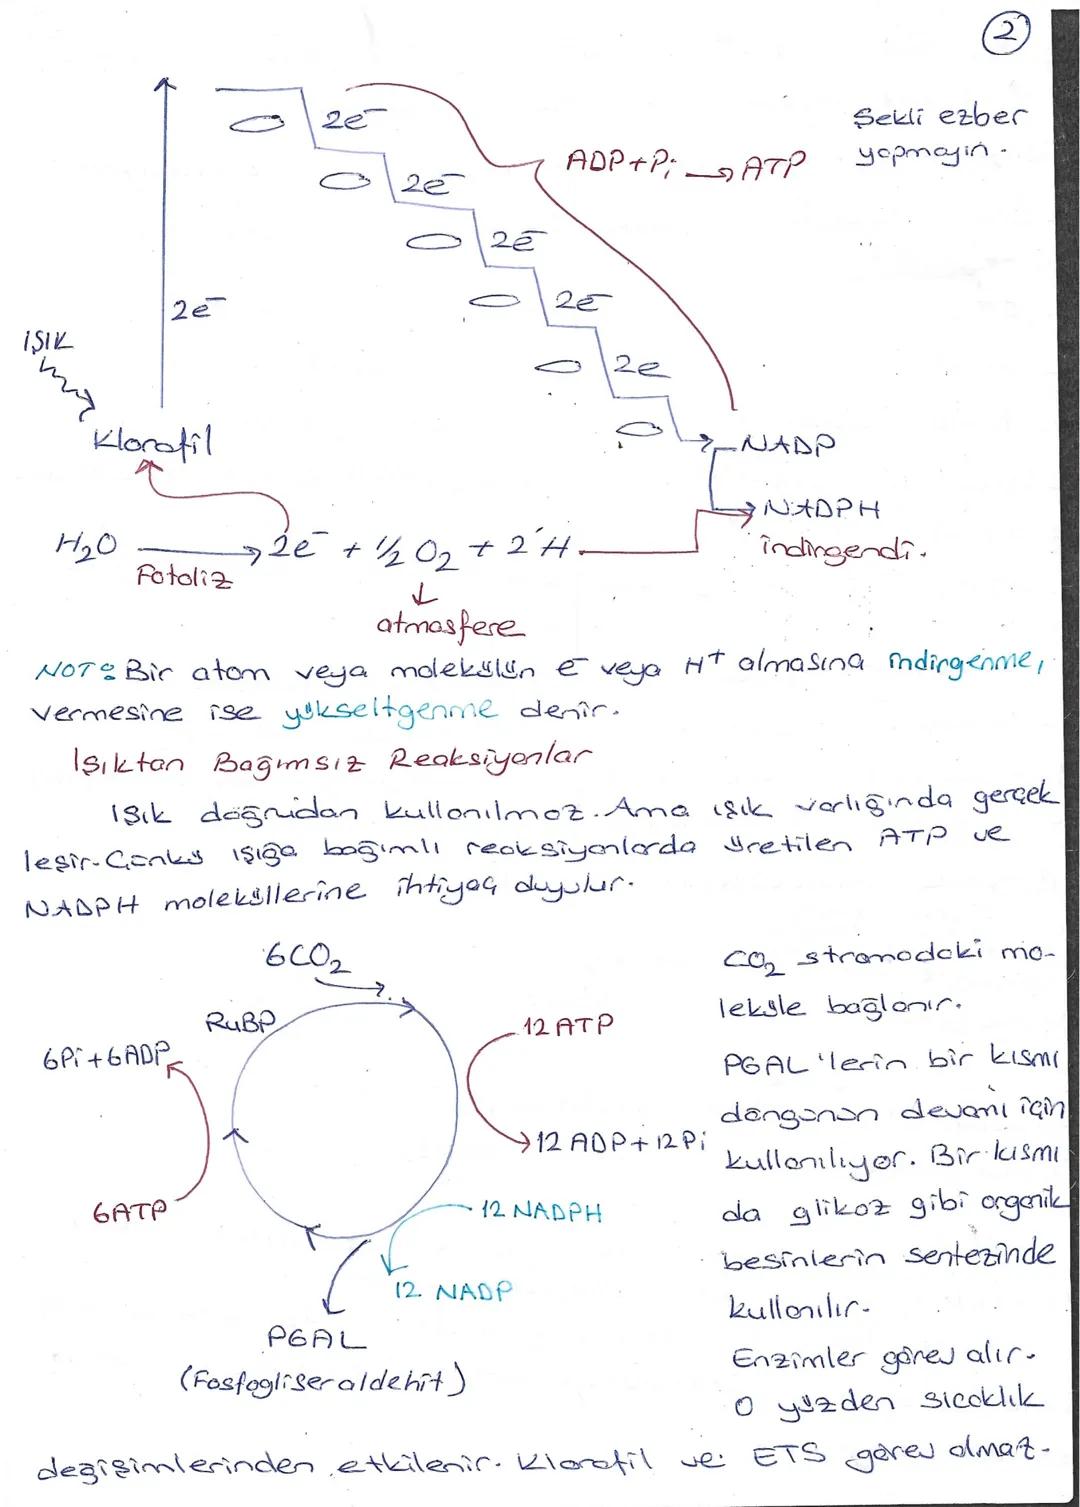 2
Şekli ezber
yapmayın.
2e⁻
ADP+Pi → ATP
2e⁻
2e⁻
2e⁻
2e⁻
2e
IŞIK
Klorofil
NADP
NADPH
indirgendi.
H₂O → 2e⁻ + ½ O₂ + 2H
Fotoliz
atmosfere
NOT: Bir atom veya molekülün e⁻ veya H⁺ almasına indirgenme,
vermesine ise yükseltgenme denir.
Işıktan Bağımsız Reaksiyonlar
Işık doğrudan kullanılmaz. Ama ışık varlığında gerçek
leşir. Çünkü ışığa bağımlı reaksiyonlarda üretilen ATP ve
NADPH moleküllerine ihtiyaç duyulur.
6CO₂
RuBP
6Pi+6ADP
6ATP
12 ATP
12 ADP+12Pi
12 NADPH
12 NADP
PGAL
(Fosfogliseraldehit)
CO₂ stromadaki mo-
leküle bağlanır.
PGAL'lerin bir kısmı
döngünün devamı için
kullanılıyor. Bir kısmı
da glikoz gibi organik
besinlerin sentezinde
kullanılır.
Enzimler görev alır.
O yüzden sıcaklık
değişimlerinden etkilenir. Klorofil ve ETS görev almaz.